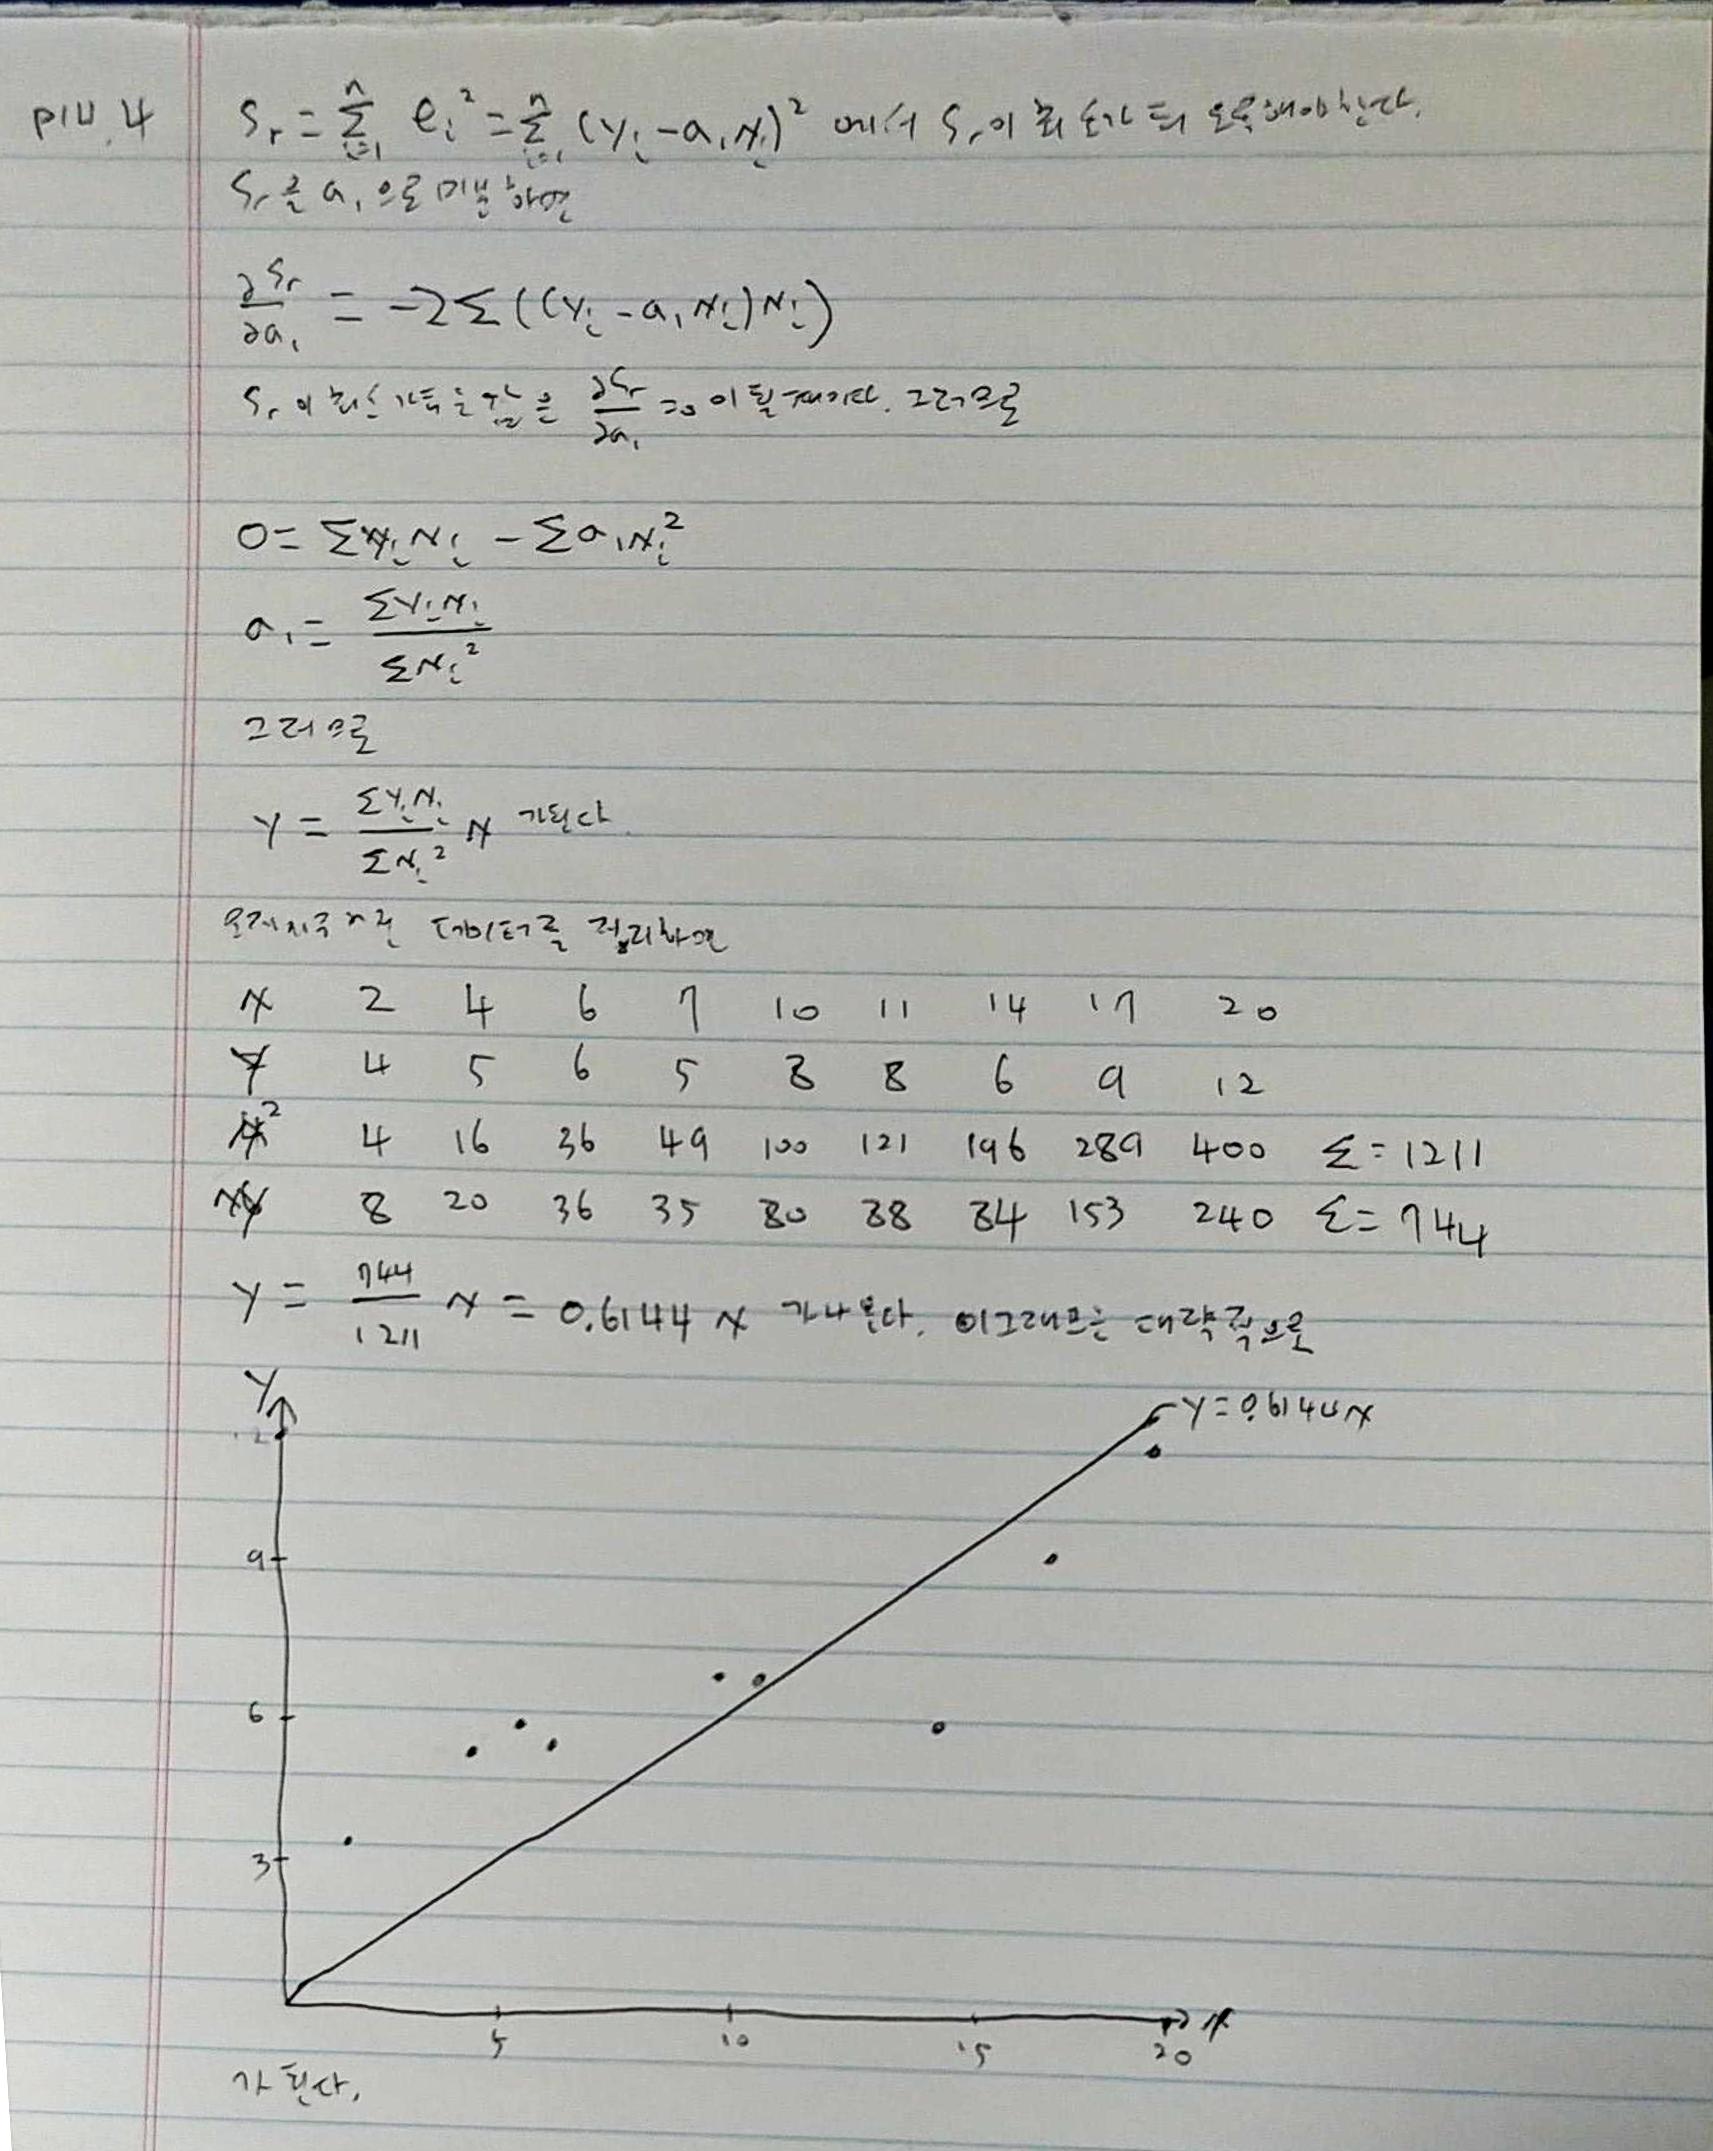 P14.4
Sᵣ = Σⁿᵢ₌₁ eᵢ² = Σⁿᵢ₌₁ (yᵢ - a₁xᵢ)² 에서 Sᵣ이 최소가 되도록해야한다.
Sᵣ를 a₁으로 미분하면
∂Sᵣ/∂a₁ = -2Σ((yᵢ - a₁xᵢ)xᵢ)
Sᵣ이 최소가되는 값은 ∂Sᵣ/∂a₁ = 0 이될때이다. 그러므로
0 = Σyᵢxᵢ - Σa₁xᵢ²
a₁ = Σyᵢxᵢ / Σxᵢ²
그러므로
y = Σyᵢxᵢ / Σxᵢ² x 가된다.
문제에서 주어진 데이터를 정리하면
x 2 4 6 7 10 11 14 17 20
y 4 5 6 5 8 8 6 9 12
x² 4 16 36 49 100 121 196 289 400 Σ=1211
xy 8 20 36 35 80 88 84 153 240 Σ=744
y = 744/1211 x = 0.6144x 가나온다. 이그래프는 대략적으로
y
y=0.6144x
12
9
6
3
5 10 15 20 x
가 된다.